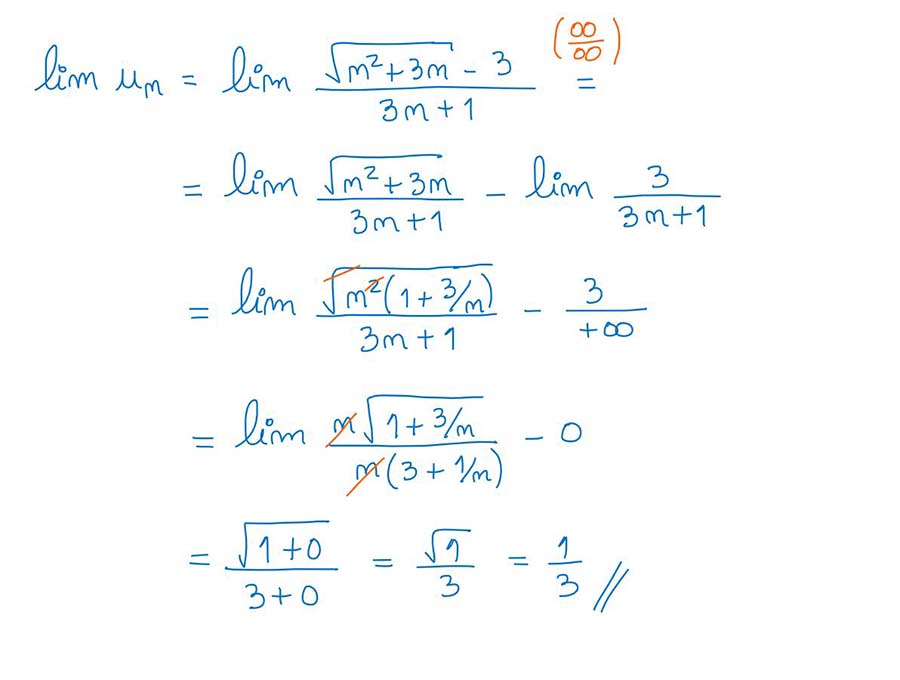 lim uₙ = lim (√(n²+3n) - 3)/(3n+1) (∞/∞) =
= lim √(n²+3n)/(3n+1) - lim 3/(3n+1)
= lim √(n²(1+3/n))/(3n+1) - 3/+∞
= lim n√(1+3/n)/(n(3+1/n)) - 0
= √(1+0)/(3+0) = √1/3 = 1/3 //